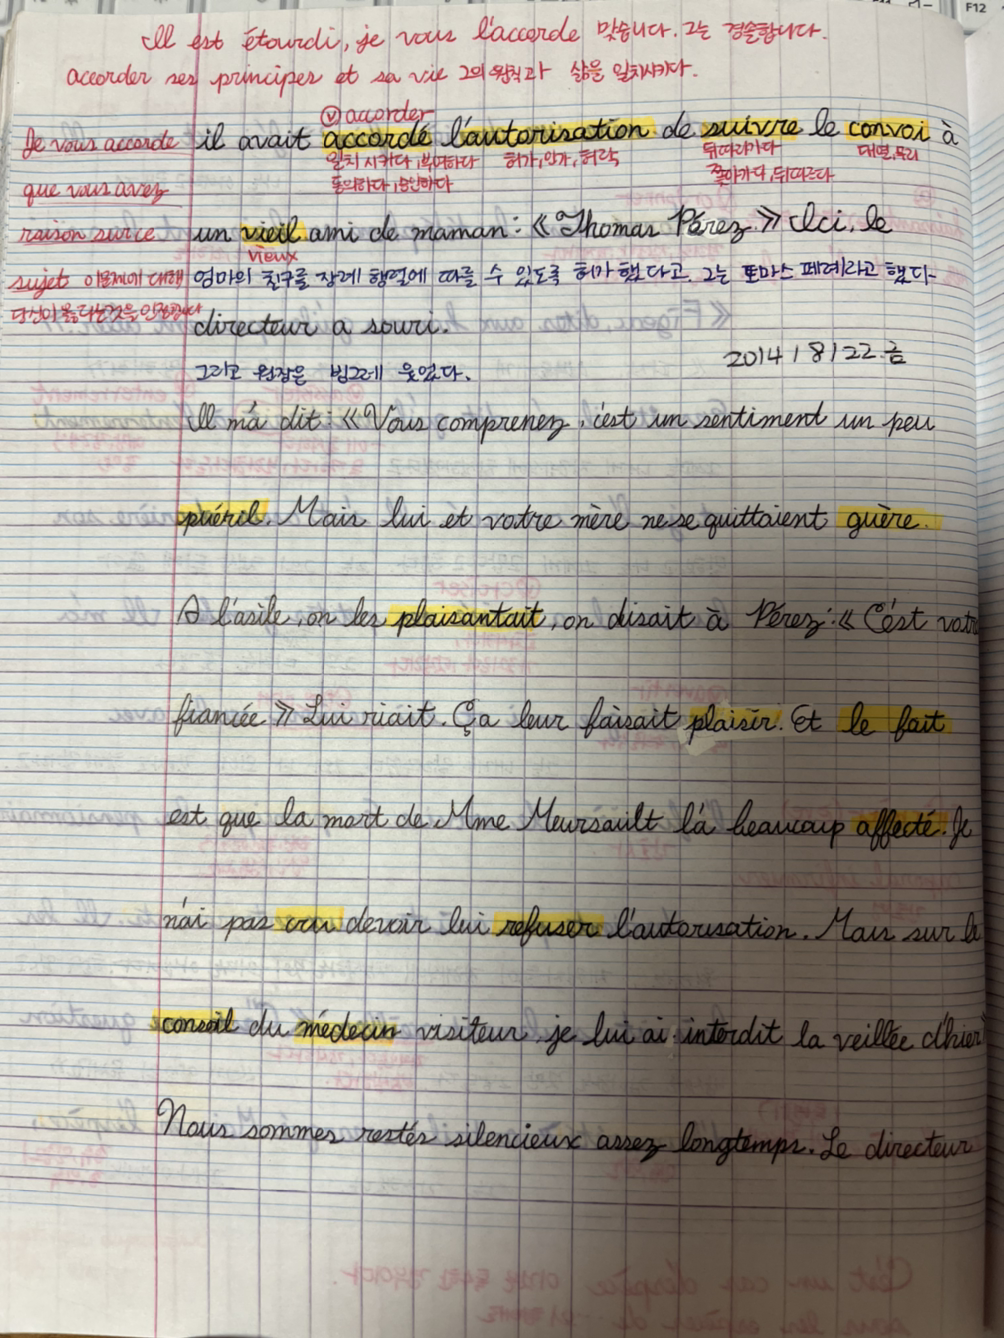 F12
Il est étourdi, je vous l'accorde 맞습니다. 그는 경솔합니다.
accorder ses principes et sa vie 그의 원칙과 삶을 일치시키다.
ⓥ accorder
Je vous accorde
il avait accordé l'autorisation de suivre le convoi à
일치시키다, 부여하다 허가, 인가, 허락 뒤따라가다 대열, 무리
동의하다, 승인하다 쫓아가다, 뒤따르다
que vous avez
raison sur ce
un vieil ami de maman : « Thomas Pérez » Ici, le
vieux
sujet 이 문제에 대해
엄마의 친구를 장례 행열에 따를 수 있도록 허가 했다고. 그는 토마스 페레라고 했다.
당신이 옳다는 것을 인정합니다
directeur a souri.
2014/8/22.금
그리고 원장은 빙그레 웃었다.
Il m'a dit : « Vous comprenez, c'est un sentiment un peu
puéril. Mais lui et votre mère ne se quittaient guère.
A l'asile, on les plaisantait, on disait à Pérez : « C'est votre
fiancée » Lui riait. Ça leur faisait plaisir. Et le fait
est que la mort de Mme Meursault l'a beaucoup affecté. Je
n'ai pas cru devoir lui refuser l'autorisation. Mais sur le
conseil du médecin visiteur, je lui ai interdit la veillée d'hier »
Nous sommes restés silencieux assez longtemps. Le directeur